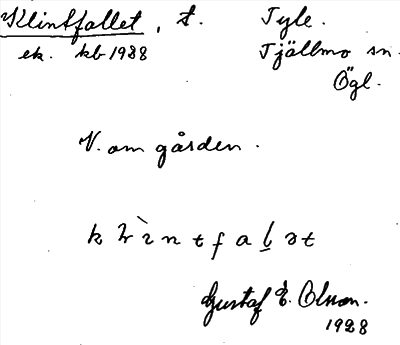 Klintfallet, t. Tyle.
ek. kb 1988 Tjällmo sn.
Ögl.
V. om gården.
Gustaf E. Olson.
1928